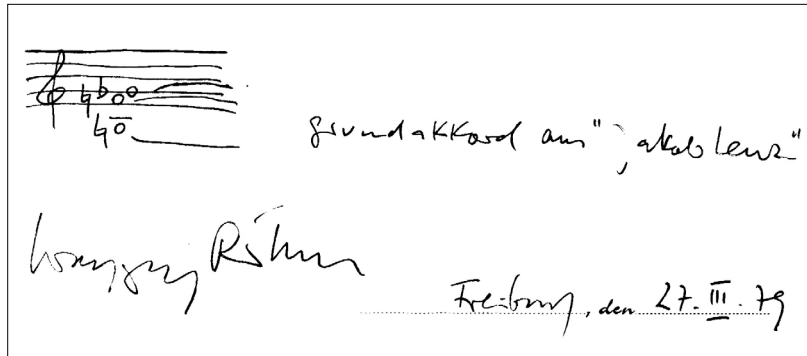 Grundakkord aus "Jakob Lenz"
Wolfgang Rihm
Freiburg, den 27. III. 79